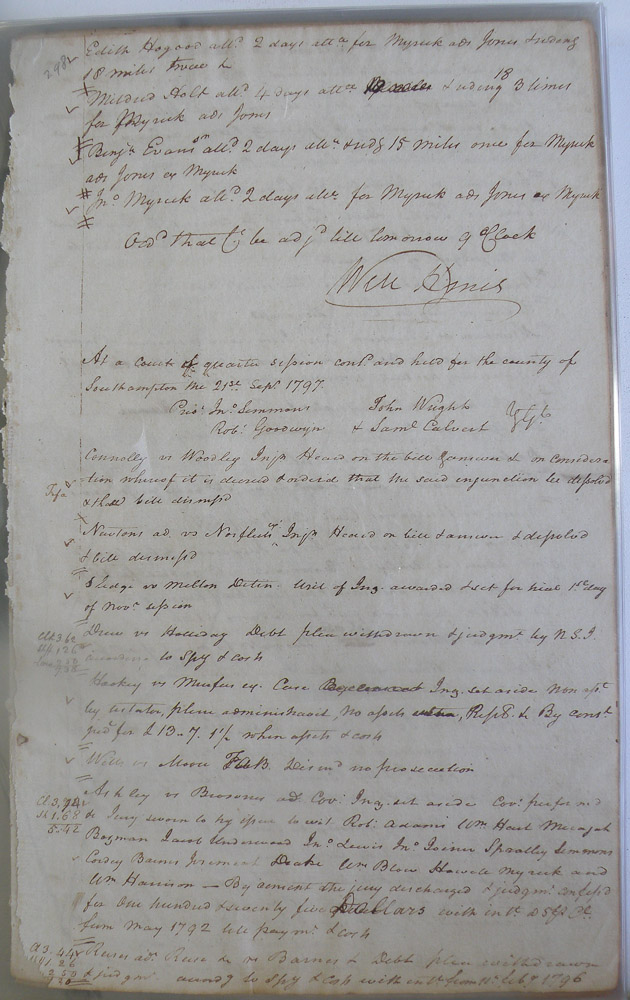 298
Edith Hogood alld. 2 days atta. for Myrick ads Jones & riding
18 miles twice &
Mildred Holt alld. 4 days atta. & riding 18 3 times
for Myrick ads Jones
Benja. Evans alld. 2 days atta. & ridg 15 miles once for Myrick
ads Jones ex Myrick
Jno. Myrick alld. 2 days atta for Myrick ads Jones ex Myrick
Ordd. that Ct. be adjd. till tomorrow 9 oClock
At a Court of quarter session cont. and held for the county of
Southampton the 21st. Sept. 1797.
Pres. Jno. Simmons John Wright
Rob. Goodwyn & Saml. Calvert
Connolly vs Woodley Injn. Heard on the bill & answer & on considera-
tion whereof it is decreed & ordered that the said injunction be desolvd
& the bill dismisd
Newtons ad. vs Injn. Heard on bill & answer & desolvd
& bill dismisd
Sledge vs Melton Detin. Writ of Inq. awarded & set for trial 1st. day
of Novr. session
Drew vs Holliday Debt plea withdrawn & judgmt. by N.S.J.
according to Spy & costs
vs ex. Case Inq. set aside non asst.
by testator, plene administravit, no assets, Repl. & By const.
judt. for £ 13.. 7. 1½ when assets & costs
Wills vs Moore T A B. Discd. no prosecution
Ashley vs ad Cov. Inq. set aside Cov. performed
& Jury sworn to try issue to wit Rob. Adams Wm. Hart
Bozman Jacob Underwood Jno. Lewis Jno. Joiner Spratley Simmons
Cordey Barnes Jeremiah Drake Wm. Blow Howell Myrick and
Wm. Harrison — By consent the jury discharged & judgmt. confessd
for One hundred & seventy five Dollars with int. a 5 P Ct.
from May 1792 till paymt. & costs
vs Barnes Debt plea withdrawn
& judgmt. accordg to Spy & costs with int. from Feby 1796